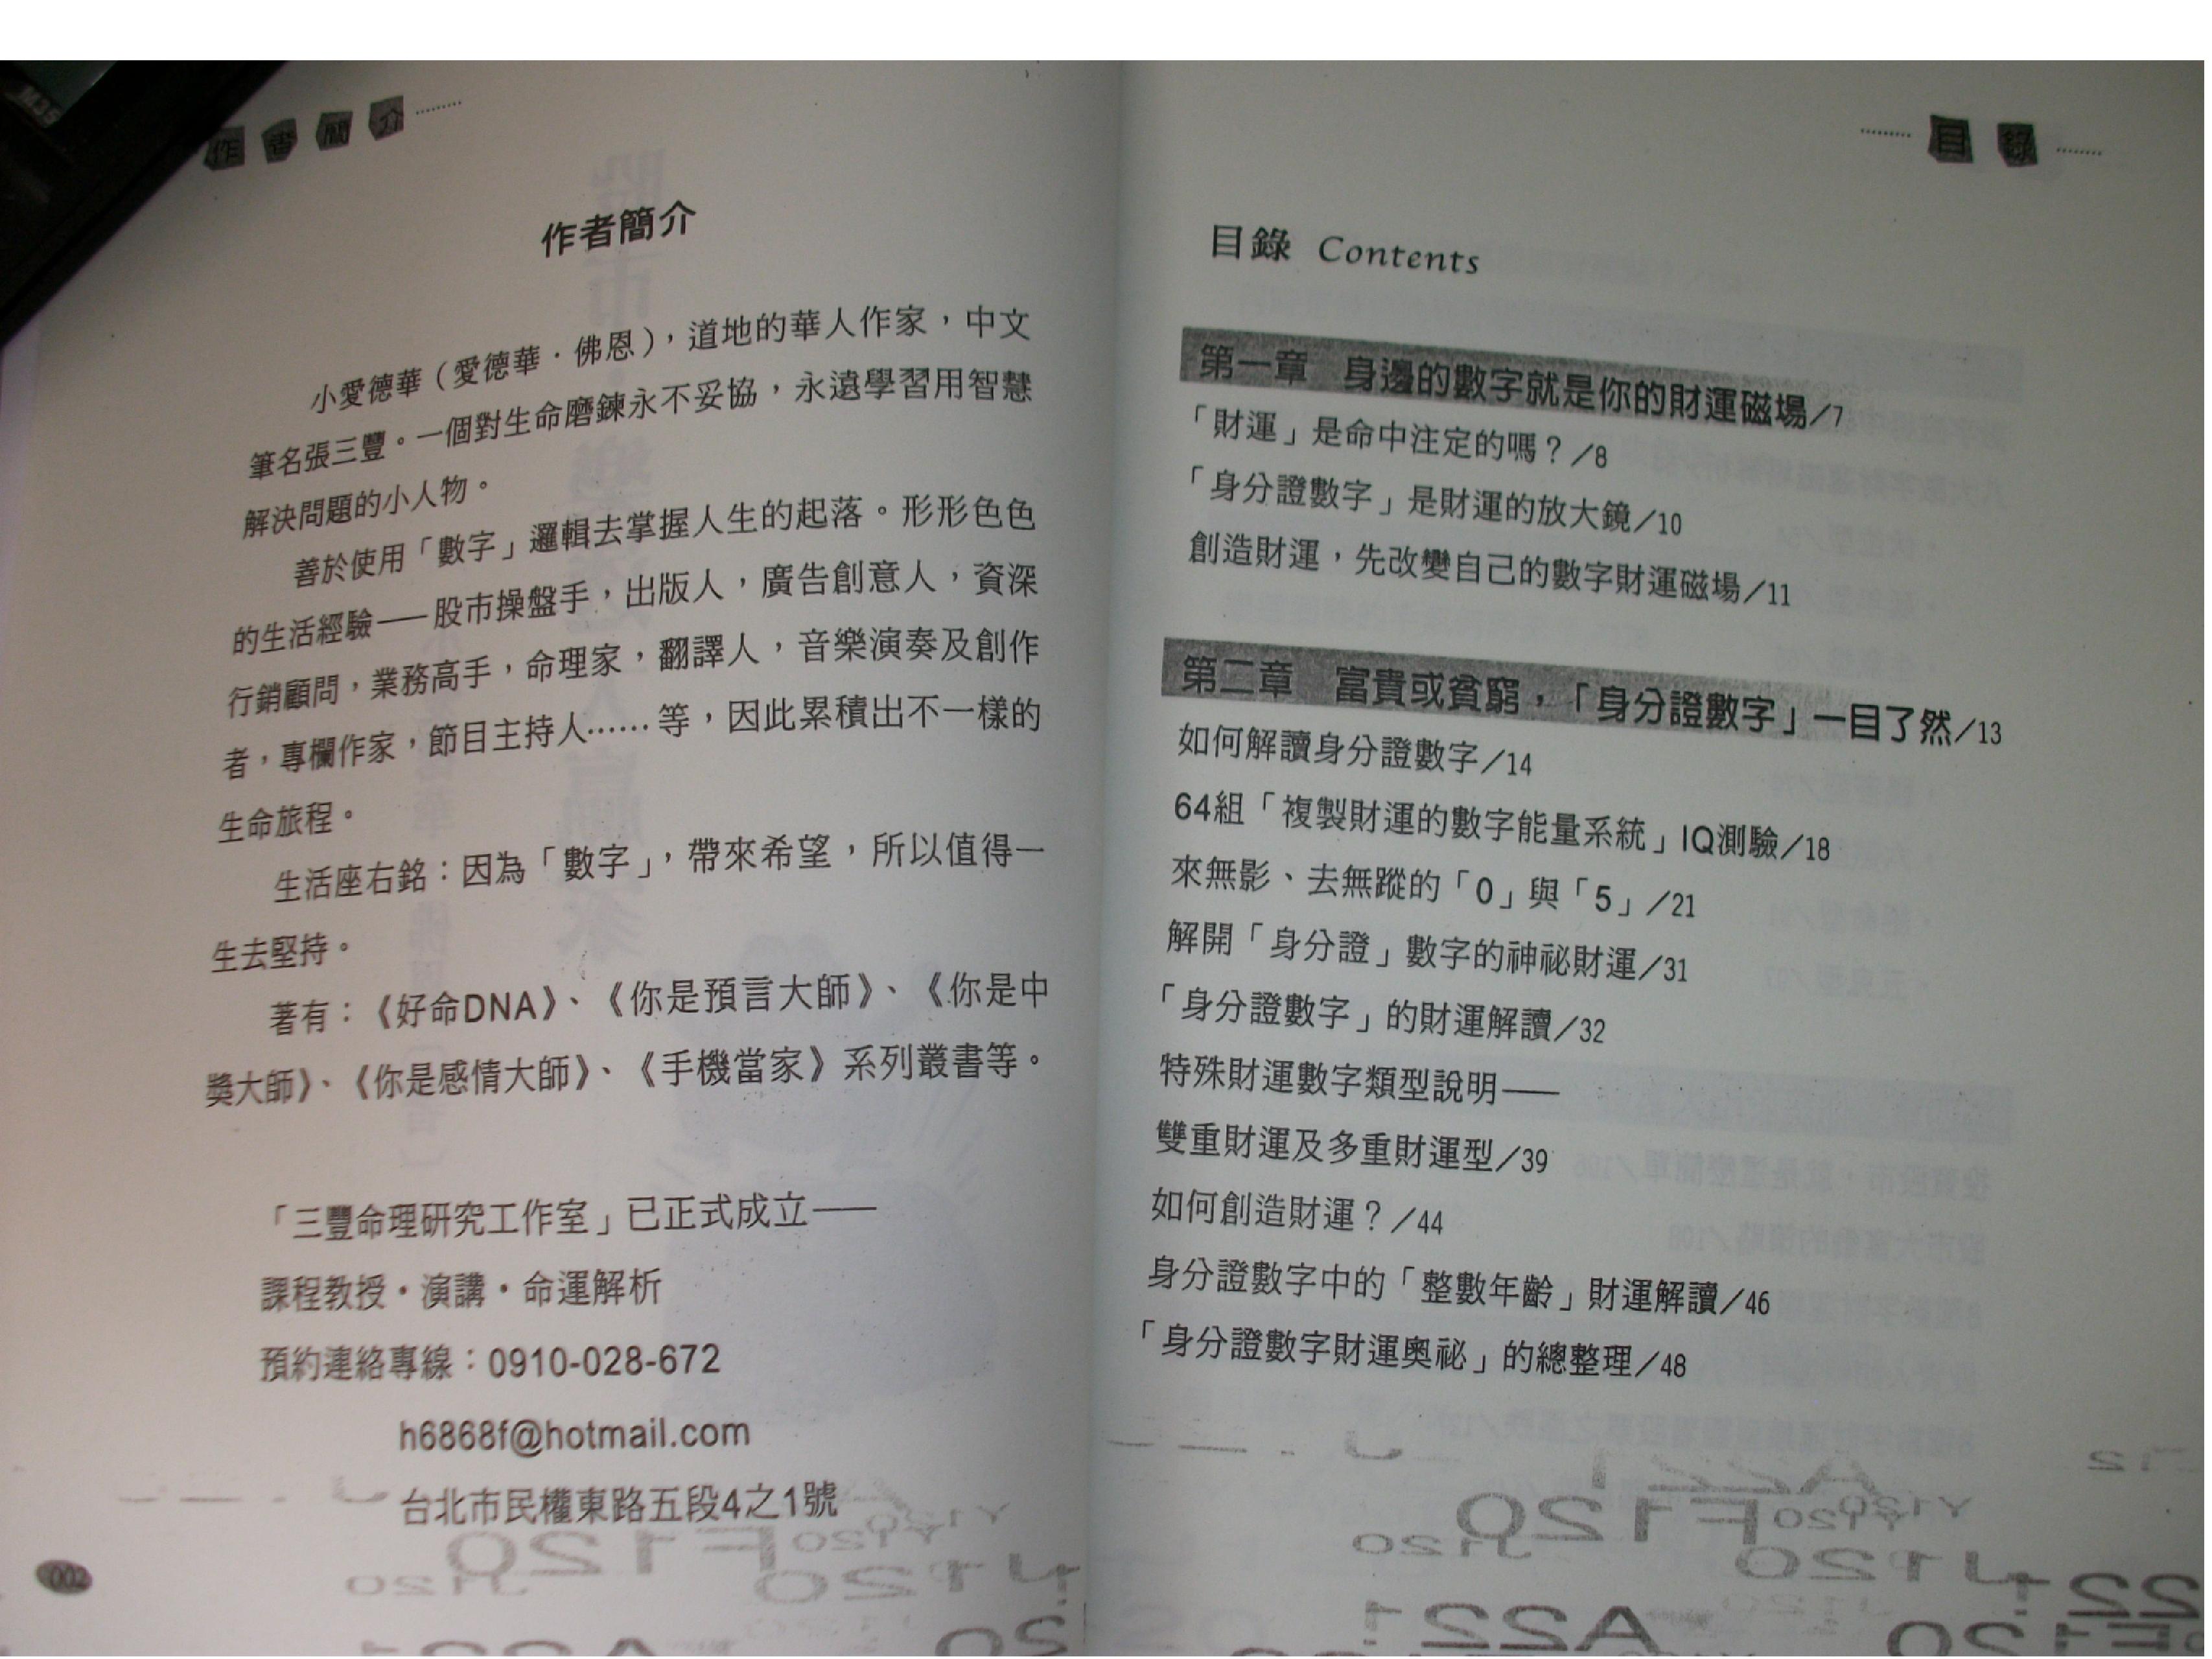 作者簡介
作者簡介
小愛德華（愛德華．佛恩），道地的華人作家，中文
筆名張三豐。一個對生命磨鍊永不妥協，永遠學習用智慧
解決問題的小人物。
善於使用「數字」邏輯去掌握人生的起落。形形色色
的生活經驗——股市操盤手，出版人，廣告創意人，資深
行銷顧問，業務高手，命理家，翻譯人，音樂演奏及創作
者，專欄作家，節目主持人……等，因此累積出不一樣的
生命旅程。
生活座右銘：因為「數字」，帶來希望，所以值得一
生去堅持。
著有：《好命DNA》、《你是預言大師》、《你是中
獎大師》、《你是感情大師》、《手機當家》系列叢書等。
「三豐命理研究工作室」已正式成立——
課程教授・演講・命運解析
預約連絡專線：0910-028-672
h6868f@hotmail.com
台北市民權東路五段4之1號
002
目錄
目錄 Contents
第一章 身邊的數字就是你的財運磁場/7
「財運」是命中注定的嗎？/8
「身分證數字」是財運的放大鏡/10
創造財運，先改變自己的數字財運磁場/11
第二章 富貴或貧窮，「身分證數字」一目了然/13
如何解讀身分證數字/14
64組「複製財運的數字能量系統」IQ測驗/18
來無影、去無蹤的「0」與「5」/21
解開「身分證」數字的神祕財運/31
「身分證數字」的財運解讀/32
特殊財運數字類型說明——
雙重財運及多重財運型/39
如何創造財運？/44
身分證數字中的「整數年齡」財運解讀/46
「身分證數字財運奧祕」的總整理/48